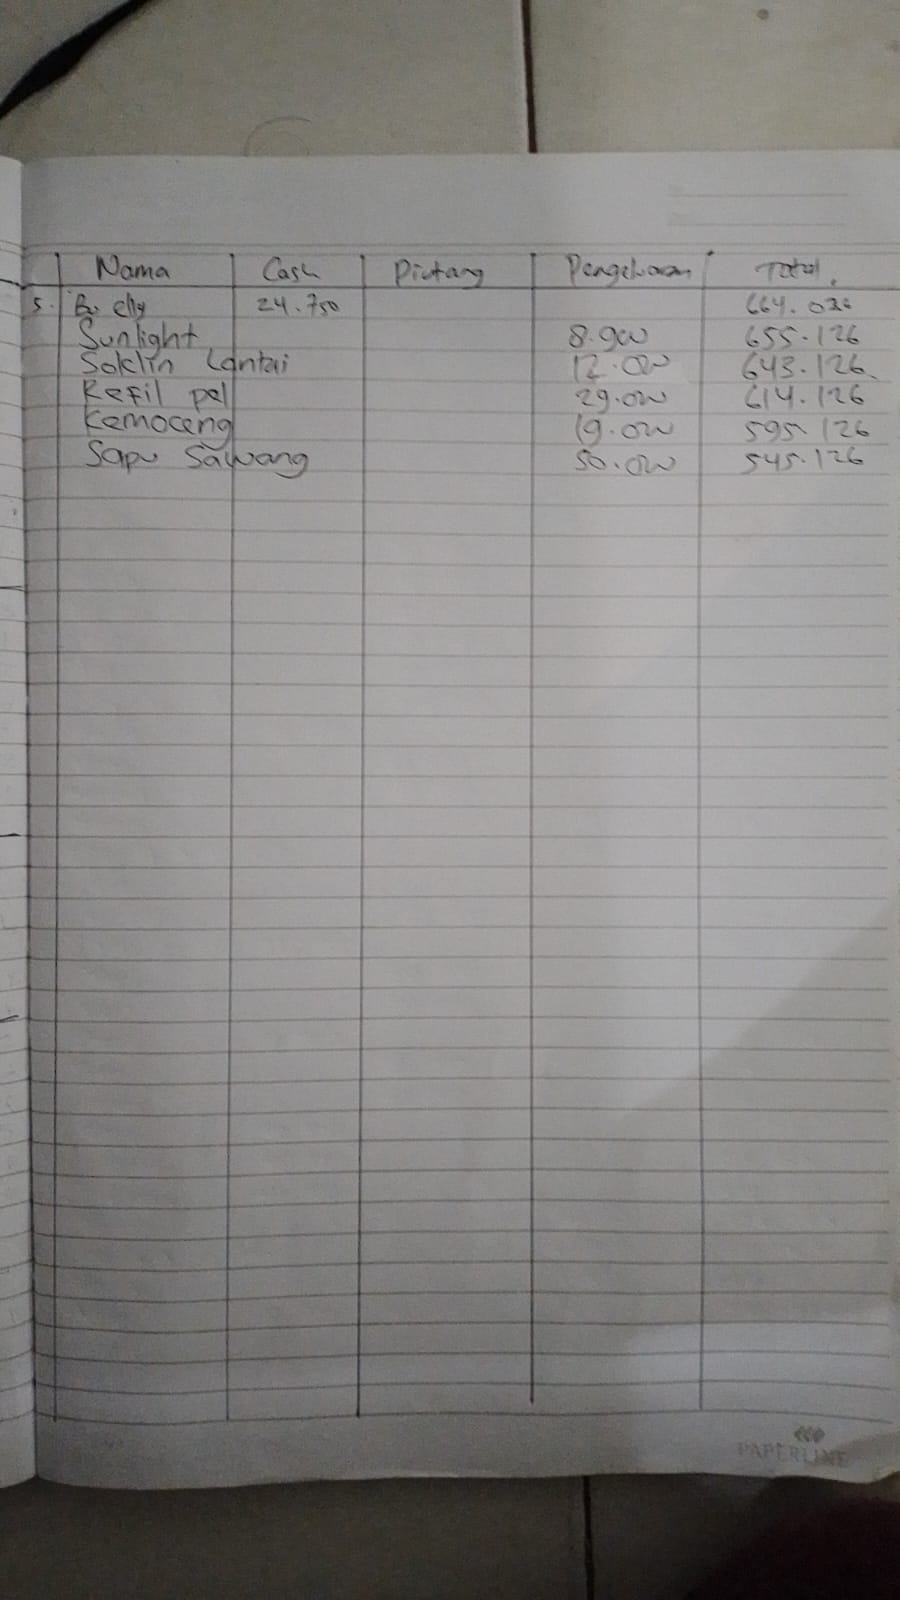 Nama Cash Piutang Pengeluaran Total
5. Bu elly 24.750 664.026
Sunlight 8.900 655.126
Soklin Lantai 12.000 643.126
Refil pel 29.000 614.126
Kemoceng 19.000 595.126
Sapu Sawang 50.000 545.126
PAPERLINE